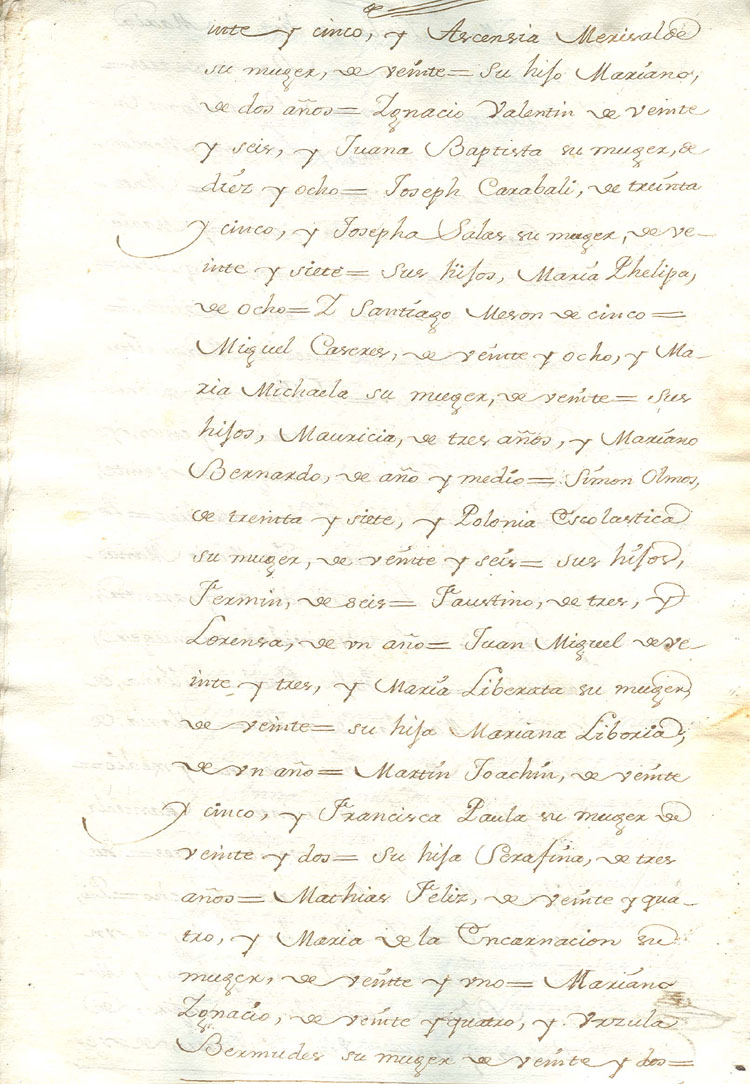 inte y cinco, y Ascensia Merisalde
su muger, de veinte= Su hijo Mariano,
de dos años= Ignacio Valentin de veinte
y seis, y Juana Baptista su muger, de
diéz y ocho= Joseph Carabali, de treinta
y cinco, y Josepha Salas su muger, de ve-
inte y siete= Sus hijos, María Phelipa,
de ocho= I Santiago Meson de cinco=
Miguel Caseres, de veinte y ocho, y Ma-
ria Michaela su muger, de veinte= Sus
hijos, Mauricia, de tres años, y Mariano
Bernardo, de año y medio= Simon Olmos,
de treintta y siete, y Polonia Escolastica
su muger, de veintte y seis= sus hijos,
Fermin, de seis= Faustino, de tres, y
Lorensa, de vn año= Juan Miguel de ve-
inte y tres, y María Liberata su muger,
de veinte= su hija Mariana Liboria,
de vn año= Martin Joachin, de veinte
y cinco, y Francisca Paula su muger de
veinte y dos= Su hija Serafina, de tres
años= Mathias Feliz, de veinte y qua-
tro, y Maria de la Encarnacion su
muger, de veintte y vno= Mariano
Ignacio, de veinte y quatro, y Vrzula
Bermudes su muger de veinte y dos=